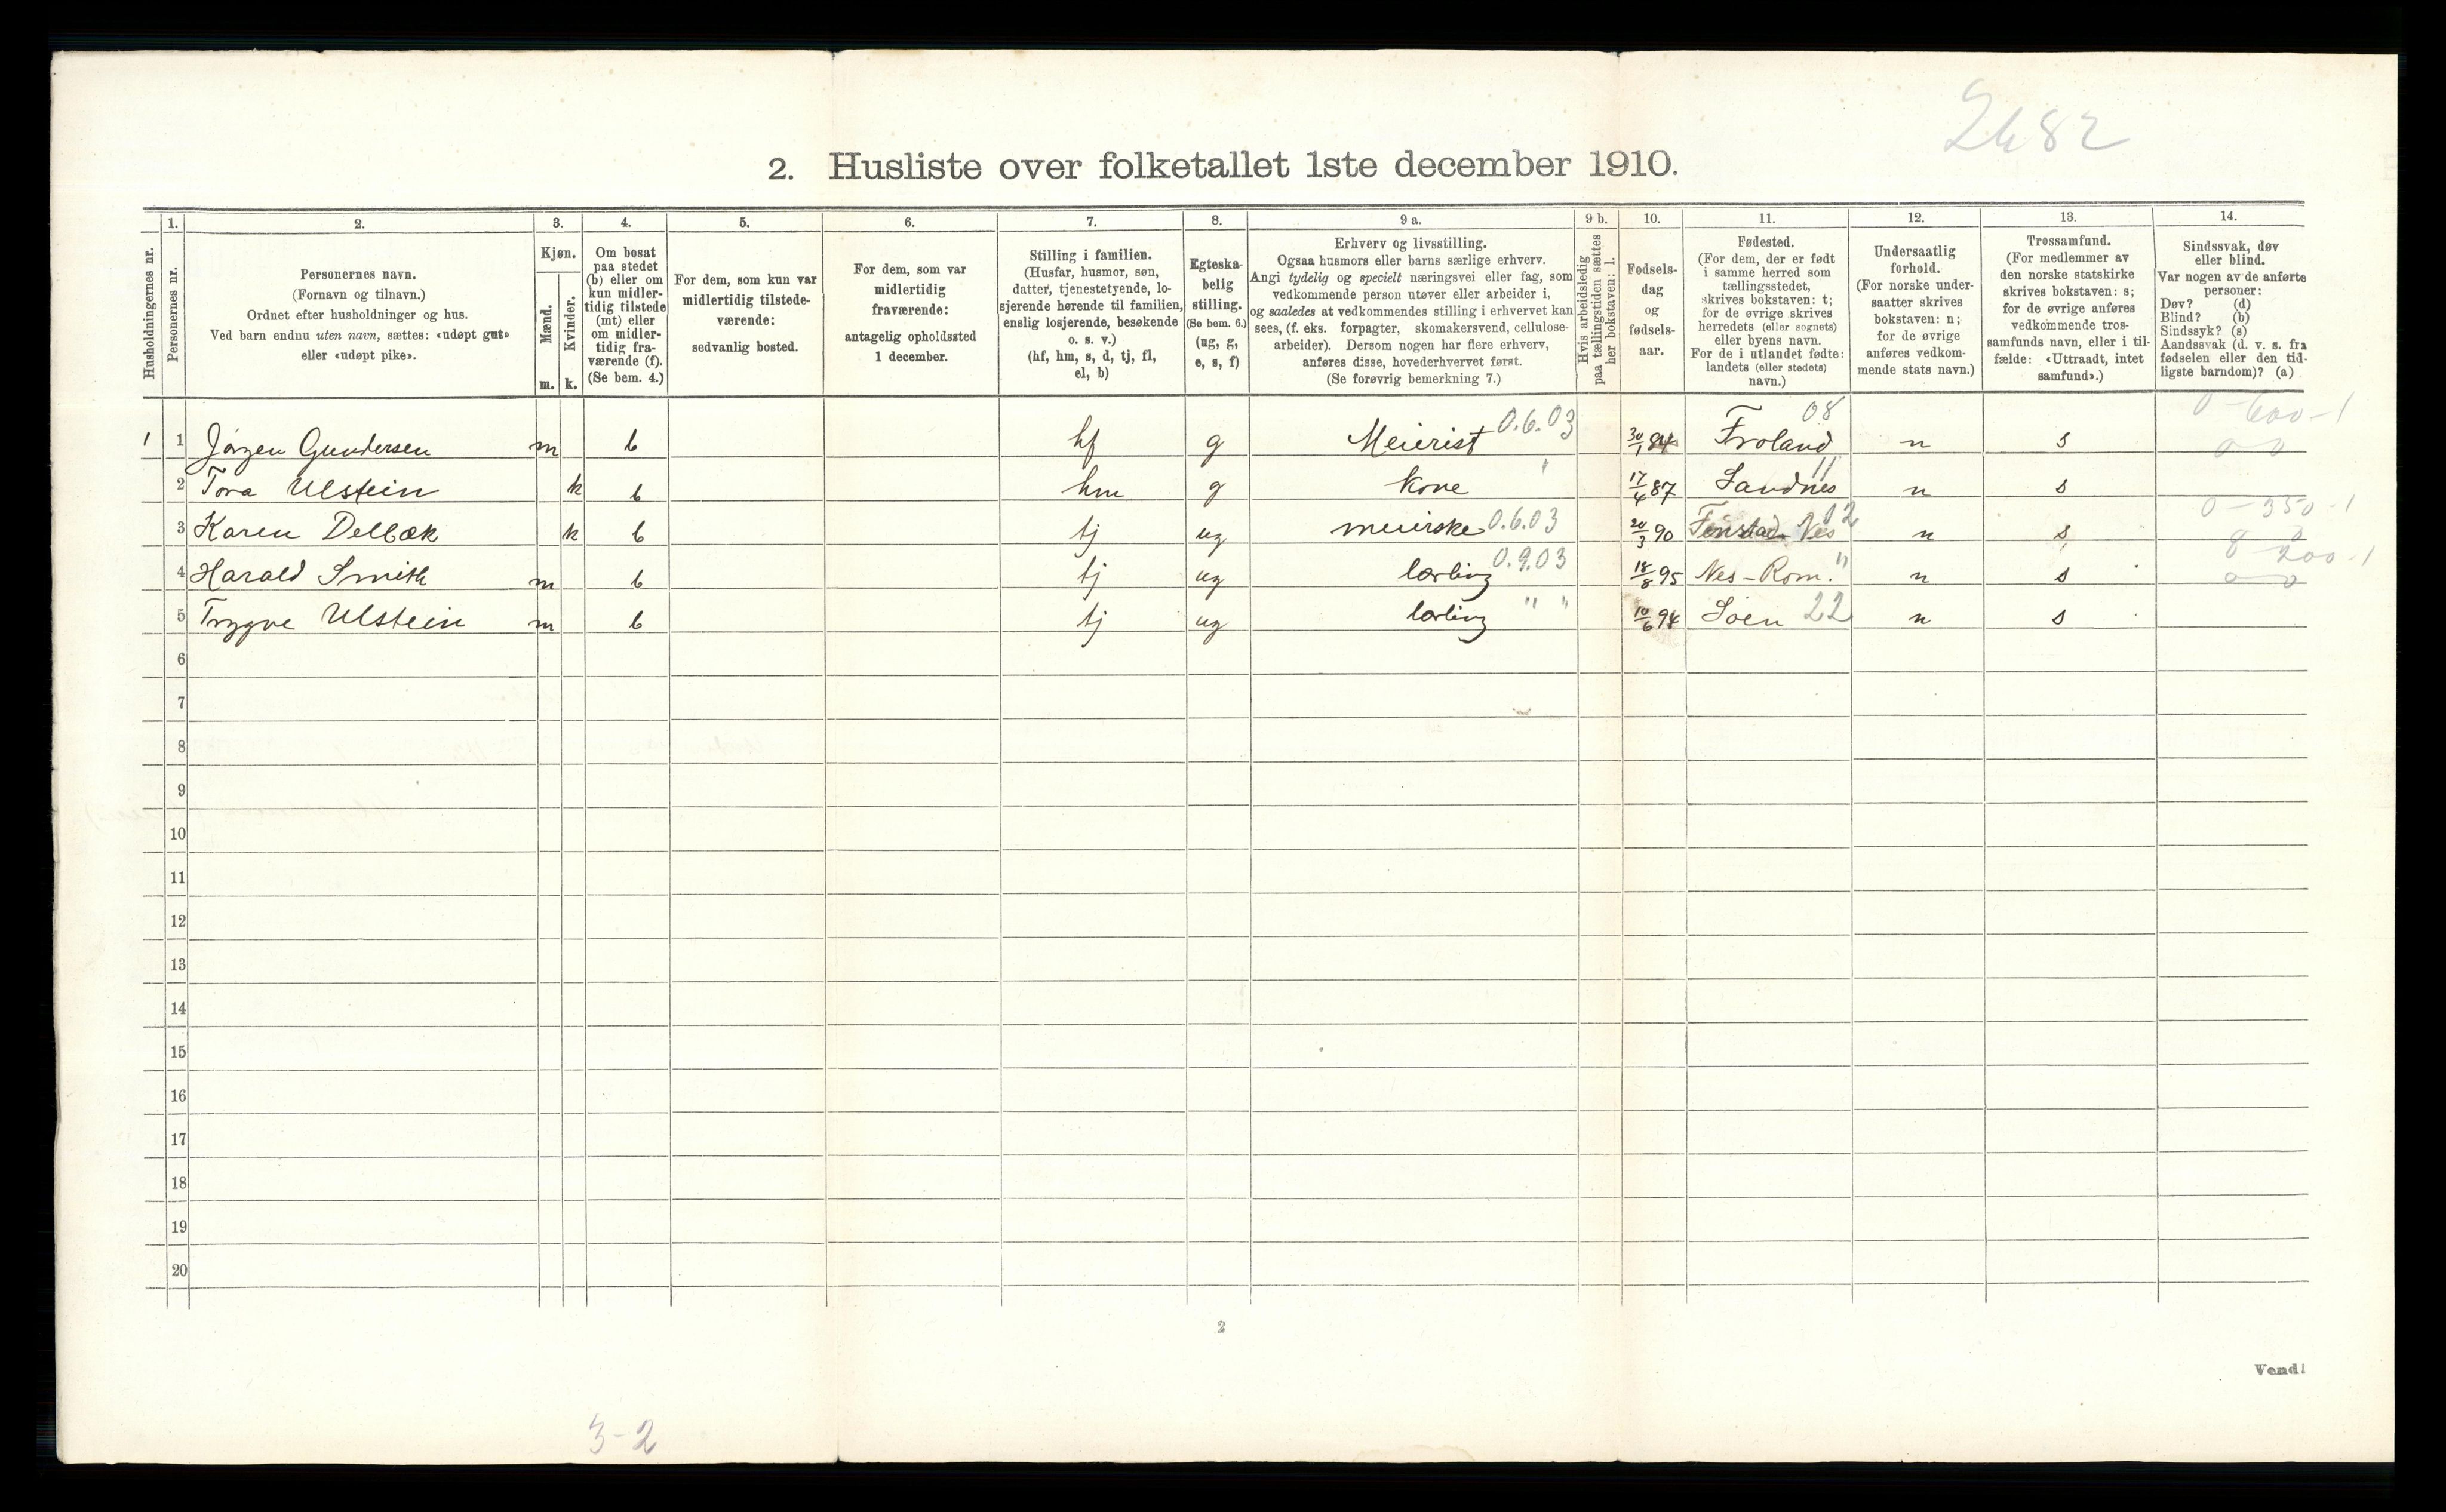 2482
2. Husliste over folketallet 1ste december 1910.
Husholdningernes nr.
1.
Personernes nr.
2.
Personernes navn.
(Fornavn og tilnavn.)
Ordnet efter husholdninger og hus.
Ved barn endnu uten navn, sættes: «udøpt gut»
eller «udøpt pike».
3.
Kjøn.
Mænd.
Kvinder.
m. k.
4.
Om bosat
paa stedet
(b) eller om
kun midler-
tidig tilstede
(mt) eller
om midler-
tidig fra-
værende (f).
(Se bem. 4.)
5.
For dem, som kun var
midlertidig tilstede-
værende:
sedvanlig bosted.
6.
For dem, som var
midlertidig
fraværende:
antagelig opholdssted
1 december.
7.
Stilling i familien.
(Husfar, husmor, søn,
datter, tjenestetyende, lo-
sjerende hørende til familien,
enslig losjerende, besøkende
o. s. v.)
(hf, hm, s, d, tj, fl,
el, b)
8.
Egteska-
belig
stilling.
(Se bem. 6.)
(ug, g,
e, s, f)
9 a.
Erhverv og livsstilling.
Ogsaa husmors eller barns særlige erhverv.
Angi tydelig og specielt næringsvei eller fag, som
vedkommende person utøver eller arbeider i,
og saaledes at vedkommendes stilling i erhvervet kan
sees, (f. eks. forpagter, skomakersvend, cellulose-
arbeider). Dersom nogen har flere erhverv,
anføres disse, hovederhvervet først.
(Se forøvrig bemerkning 7.)
9 b.
Hvis arbeidsledig
paa tællingstiden sættes
her bokstaven: l.
10.
Fødsels-
dag
og
fødsels-
aar.
11.
Fødested.
(For dem, der er født
i samme herred som
tællingsstedet,
skrives bokstaven: t;
for de øvrige skrives
herredets (eller sognets)
eller byens navn.
For de i utlandet fødte:
landets (eller stedets)
navn.)
12.
Undersaatlig
forhold.
(For norske under-
saatter skrives
bokstaven: n;
for de øvrige
anføres vedkom-
mende stats navn.)
13.
Trossamfund.
(For medlemmer av
den norske statskirke
skrives bokstaven: s;
for de øvrige anføres
vedkommende tros-
samfunds navn, eller i til-
fælde: «Uttraadt, intet
samfund».)
14.
Sindssvak, døv
eller blind.
Var nogen av de anførte
personer:
Døv? (d)
Blind? (b)
Sindssyk? (s)
Aandssvak (d. v. s. fra
fødselen eller den tid-
ligste barndom)? (a)
1 1 Jörgen Gundersen m b hf g Meierist 0.6.03 30/1 84 Froland 08 n s 0-600-1 0 0
2 Tora Ulstein k b hm g kone " 17/4 87 Sandnes 11 n s
3 Karen Delbæk k b tj ug meierske 0.6.03 20/3 90 Nes 02 n s 0-350-1
4 Harald Smith m b tj ug lærling 0.9.03 18/8 95 Nes-Rom. " n s 200-1 0 0
5 Trygve Ulstein m b tj ug lærling " " 10/6 94 Soen 22 n s
6
7
8
9
10
11
12
13
14
15
16
17
18
19
20
2
Vend!
3-2